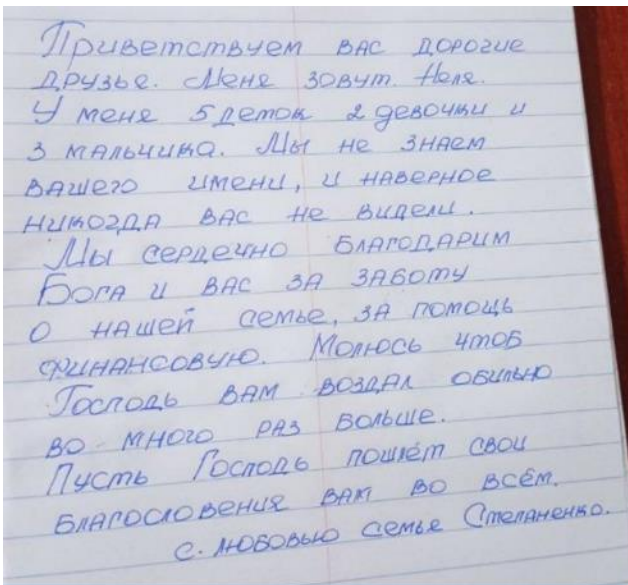 Приветствуем вас дорогие
друзье. Мене зовут. Неля.
У мене 5 деток 2 девочки и
3 мальчика. Мы не знаем
вашего имени, и наверное
никогда вас не видели.
Мы сердечно благодарим
Бога и вас за заботу
о нашей семье, за помощь
финансовую. Молюсь чтоб
Господь вам воздал обильно
во много раз больше.
Пусть Господь пошлёт свои
благословения вам во всём.
с. любовью семье Степаненко.